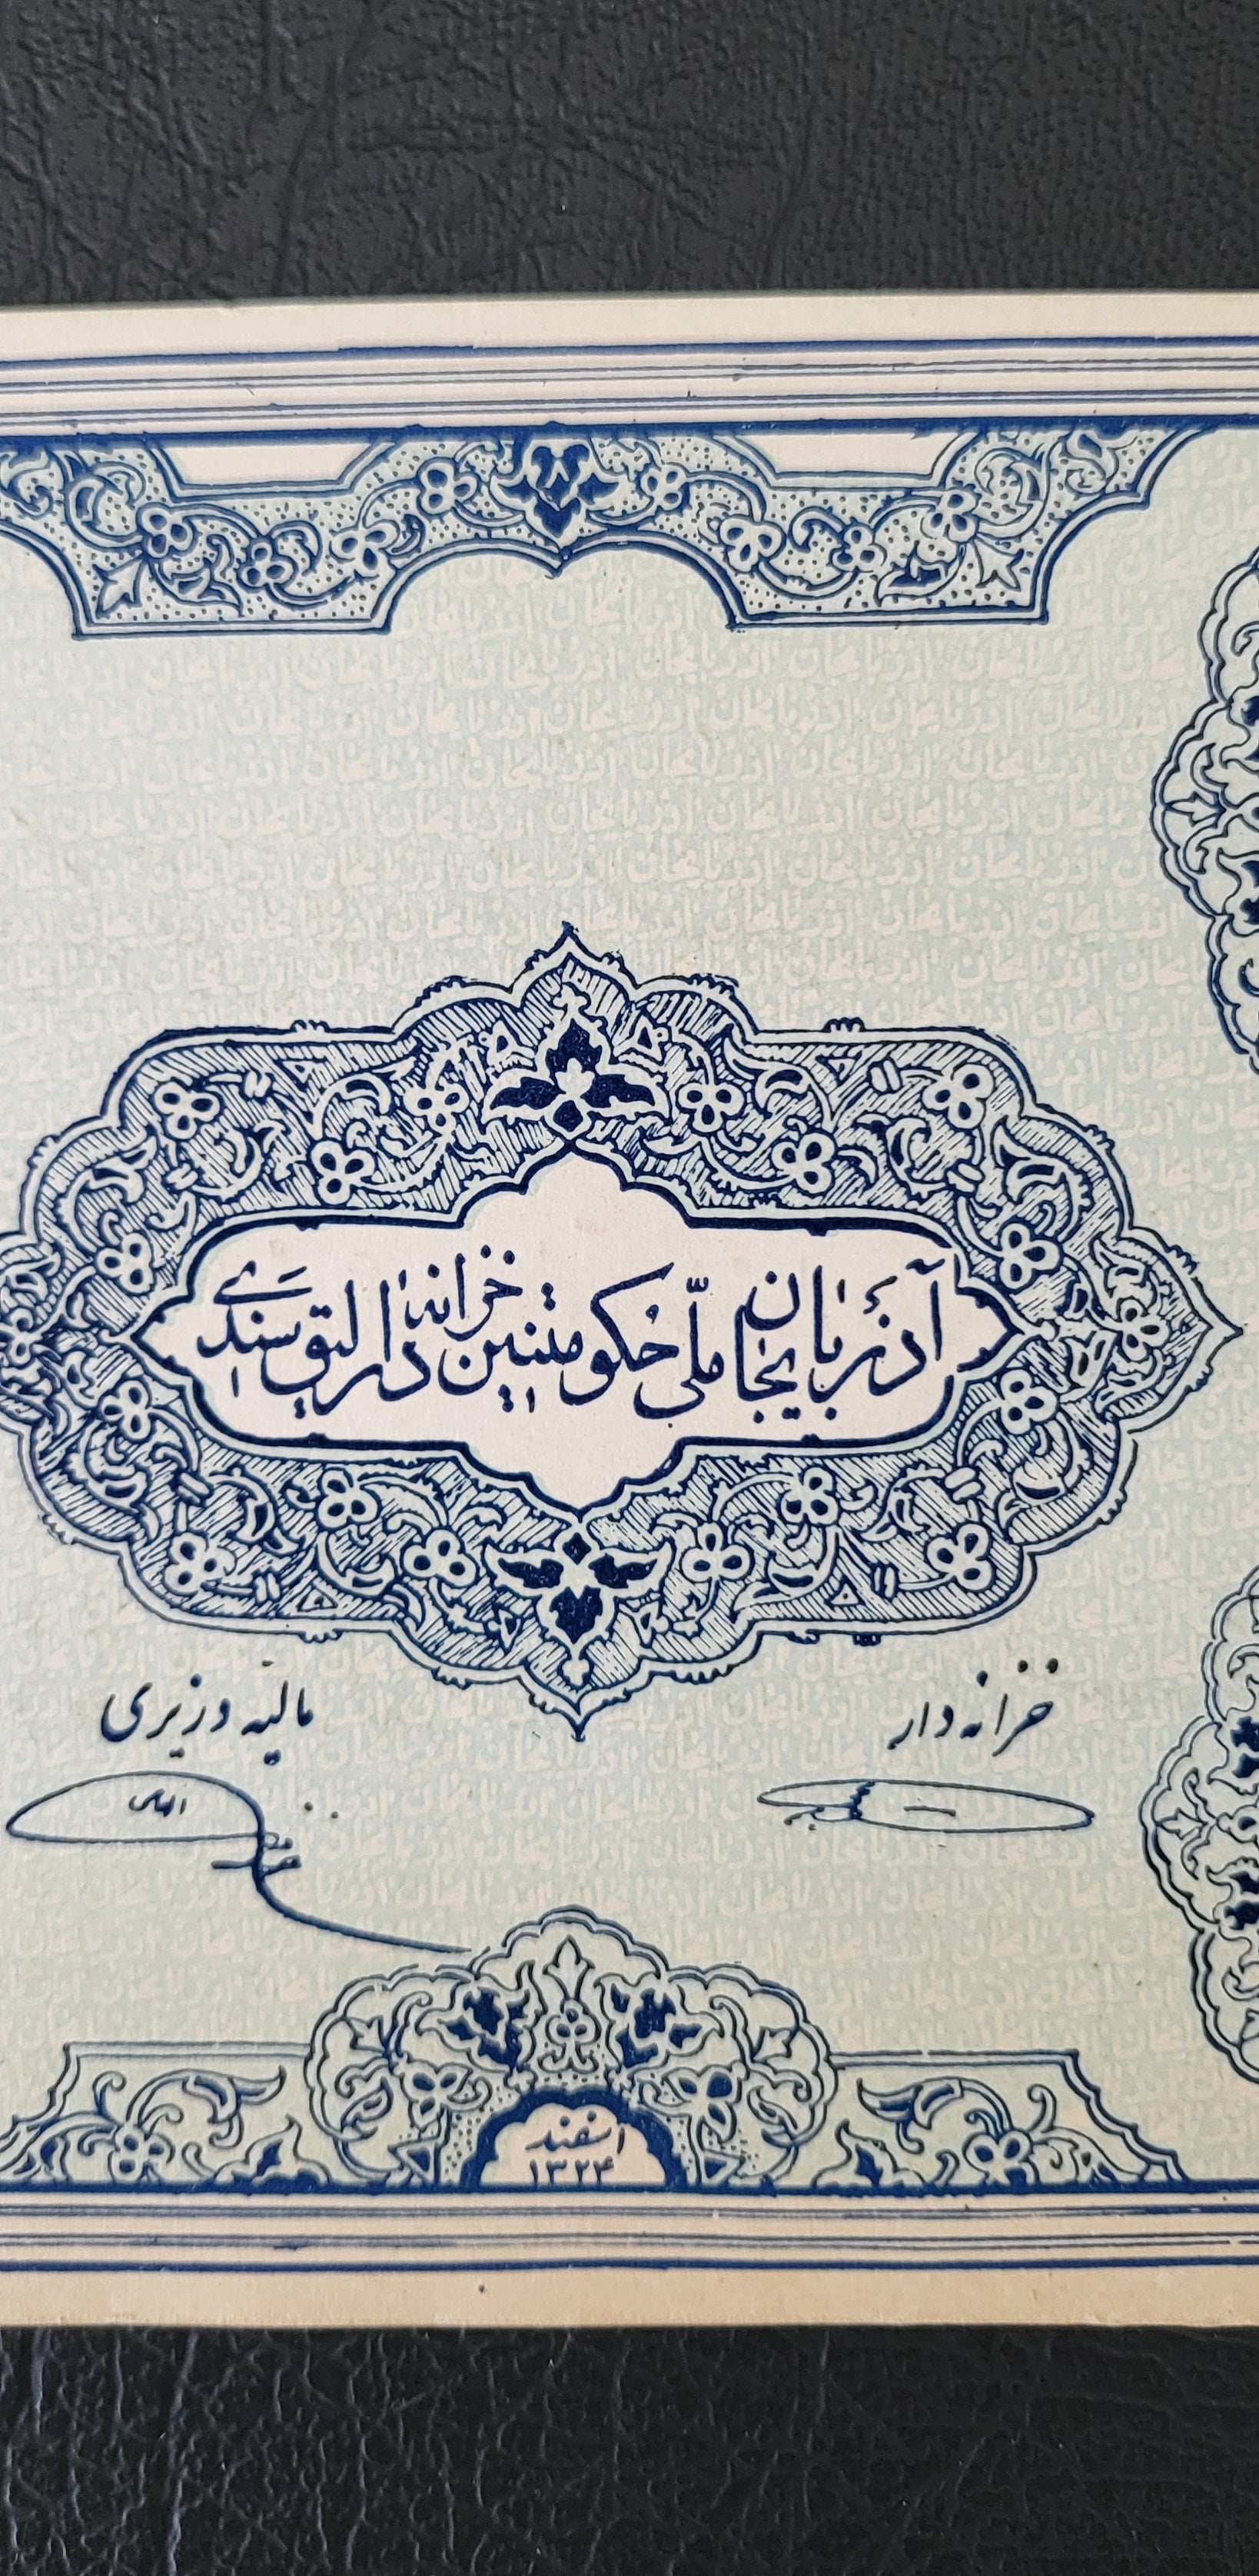 آذربایجان ملّی حُکومتینین خزانه دارلیق سندی
خزانه دار
مالیه وزیری
اسفند
۱۳۲۴